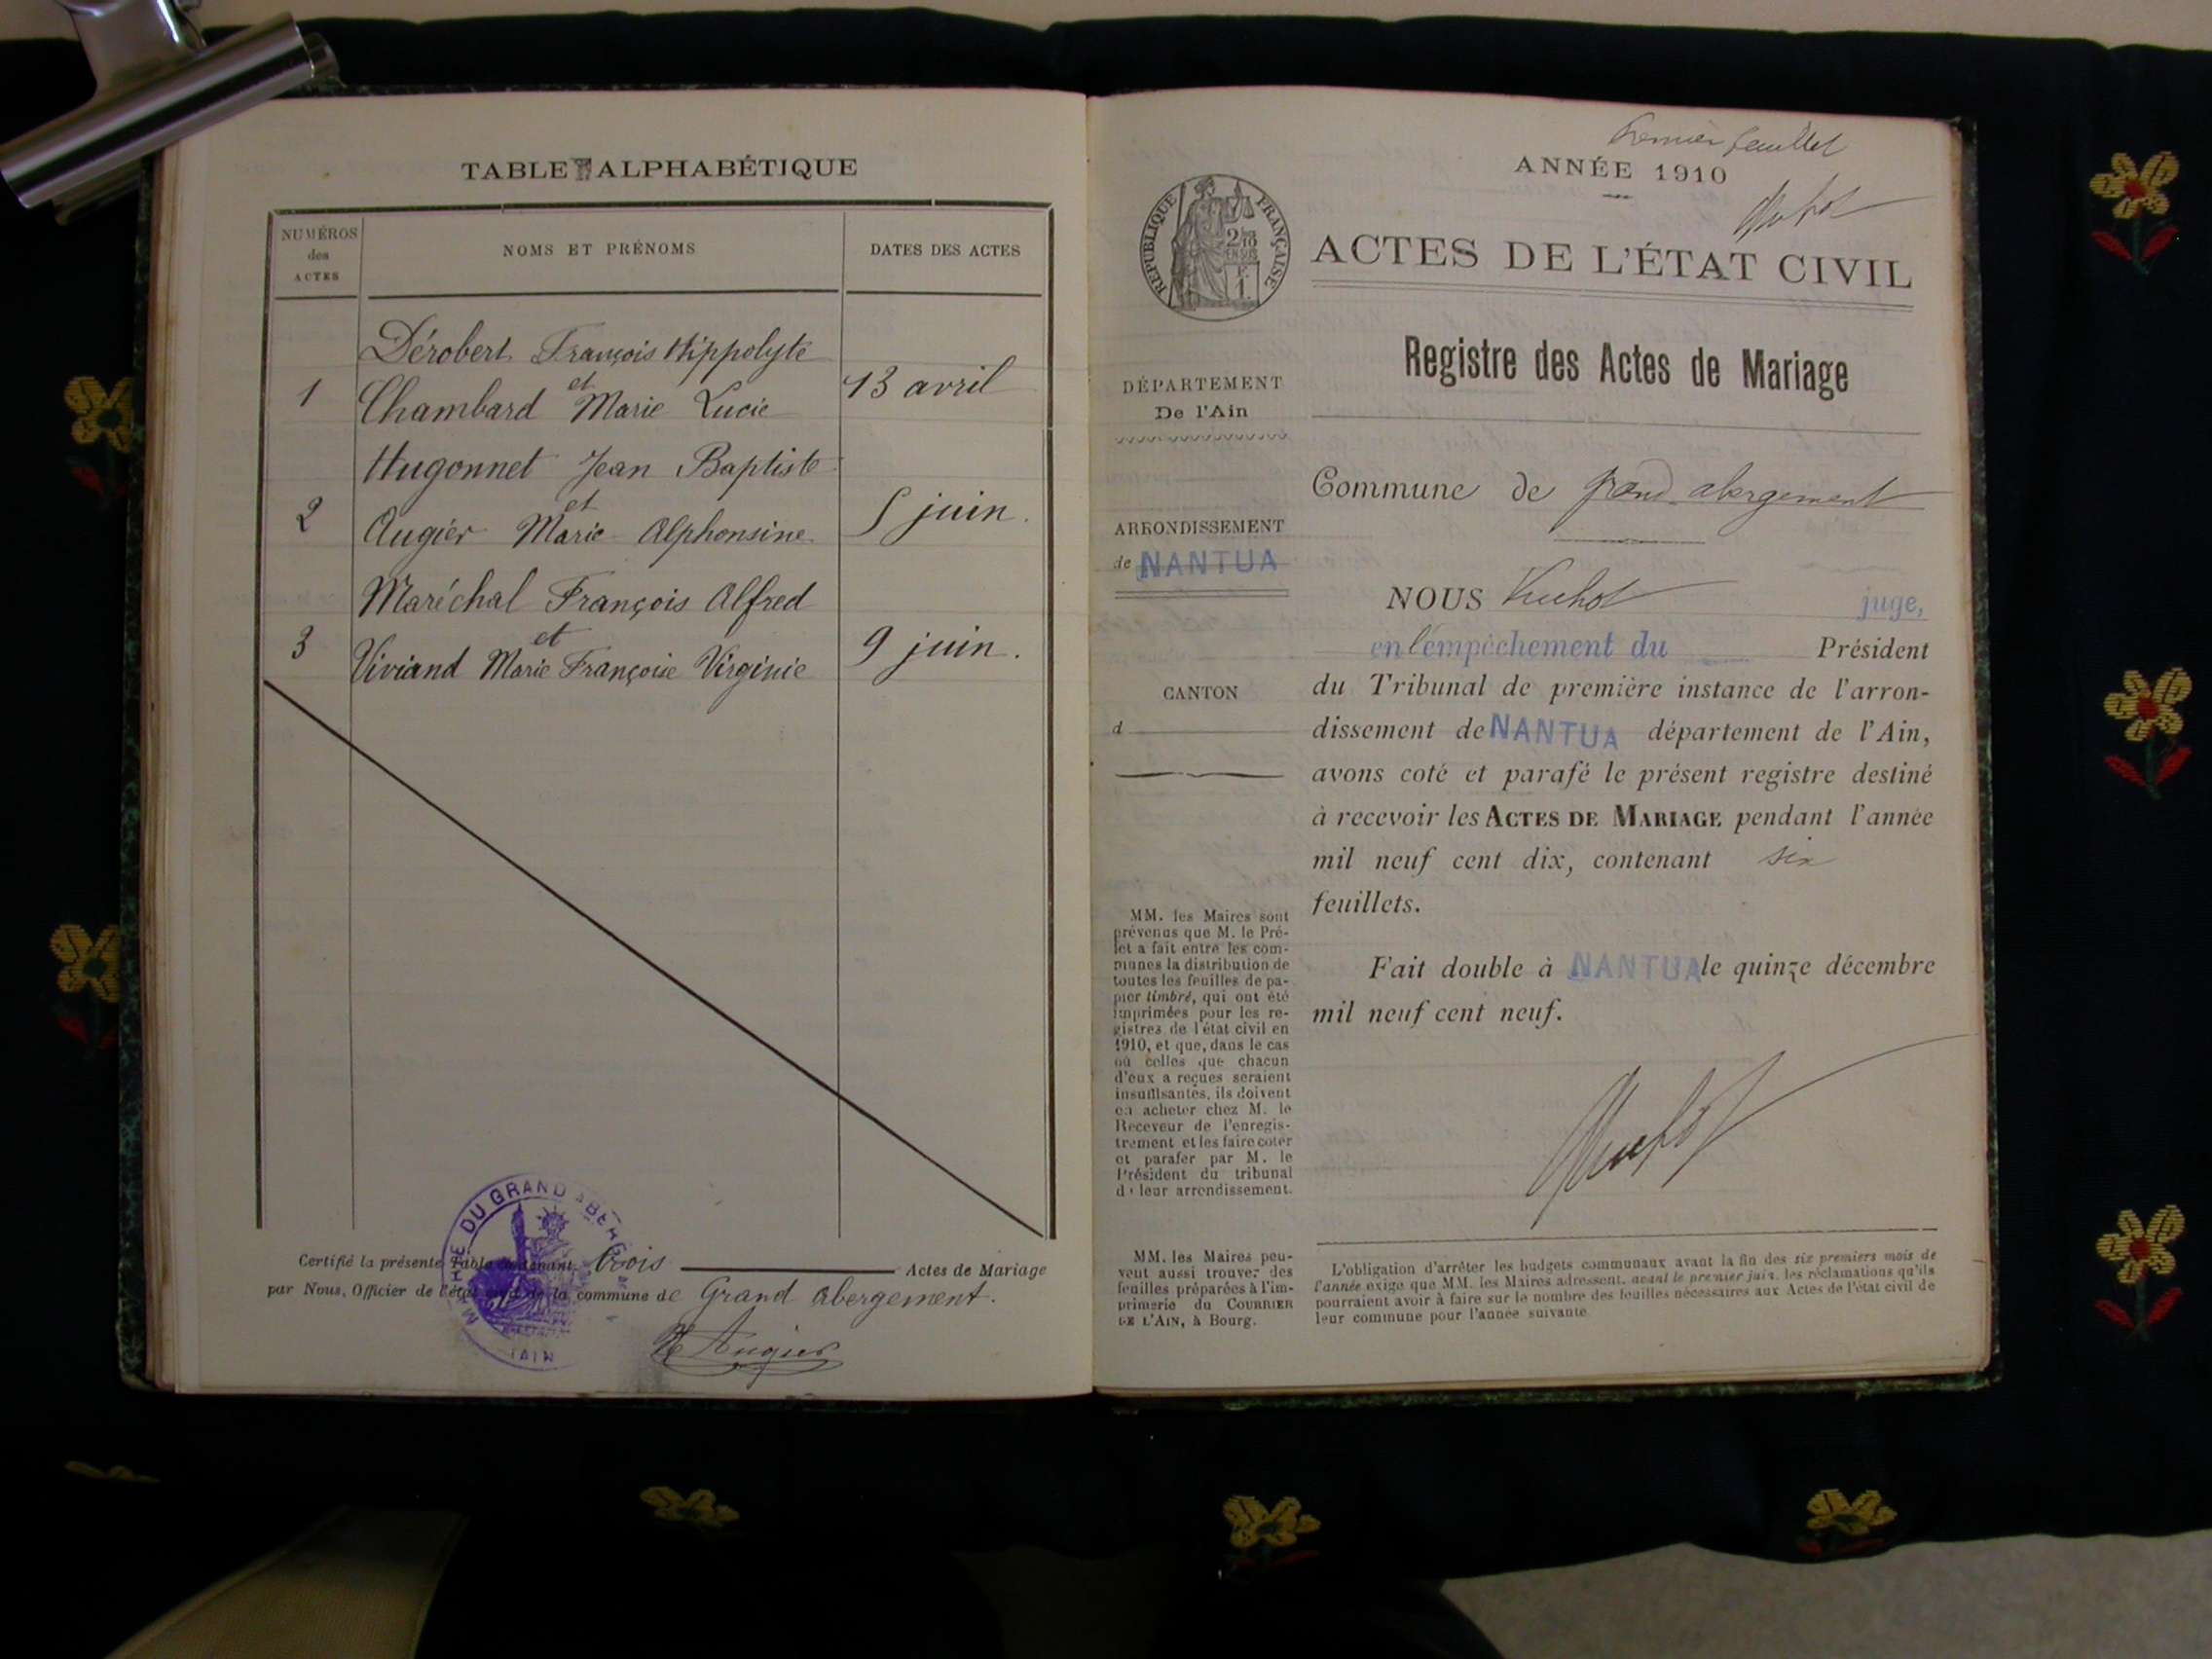 TABLE ALPHABÉTIQUE
NUMÉROS
des
ACTES
NOMS ET PRÉNOMS
DATES DES ACTES
Dérobert François Hippolyte
et
1 Chambard Marie Lucie 13 avril
Hugonnet Jean Baptiste
et
2 Augier Marie Alphonsine 5 juin.
Maréchal François Alfred
et
3 Viviand Marie Françoise Virginie 9 juin.
Certifié la présente Table contenant trois Actes de Mariage
par Nous, Officier de l'état civil de la commune de Grand Abergement.
MAIRIE DU GRAND ABERG
AIN
Augier
Premier feuillet
ANNÉE 1910
RÉPUBLIQUE FRANÇAISE
ACTES DE L'ÉTAT CIVIL
Registre des Actes de Mariage
DÉPARTEMENT
De l'Ain
Commune de grand abergement
ARRONDISSEMENT
de NANTUA
CANTON
d
NOUS juge,
en l'empêchement du Président
du Tribunal de première instance de l'arron-
dissement de NANTUA département de l'Ain,
avons coté et parafé le présent registre destiné
à recevoir les ACTES DE MARIAGE pendant l'année
mil neuf cent dix, contenant six
feuillets.
Fait double à NANTUA le quinze décembre
mil neuf cent neuf.
MM. les Maires sont
prévenus que M. le Pré-
fet a fait entre les com-
munes la distribution de
toutes les feuilles de pa-
pier timbré, qui ont été
imprimées pour les re-
gistres de l'état civil en
1910, et que, dans le cas
où celles que chacun
d'eux a reçues seraient
insuffisantes, ils doivent
en acheter chez M. le
Receveur de l'enregis-
trement et les faire coter
et parafer par M. le
Président du tribunal
de leur arrondissement.
MM. les Maires peu-
vent aussi trouver des
feuilles préparées à l'im-
primerie du COURRIER
DE L'AIN, à Bourg.
L'obligation d'arrêter les budgets communaux avant la fin des six premiers mois de
l'année exige que MM. les Maires adressent, avant le premier juin, les réclamations qu'ils
pourraient avoir à faire sur le nombre des feuilles nécessaires aux Actes de l'état civil de
leur commune pour l'année suivante.